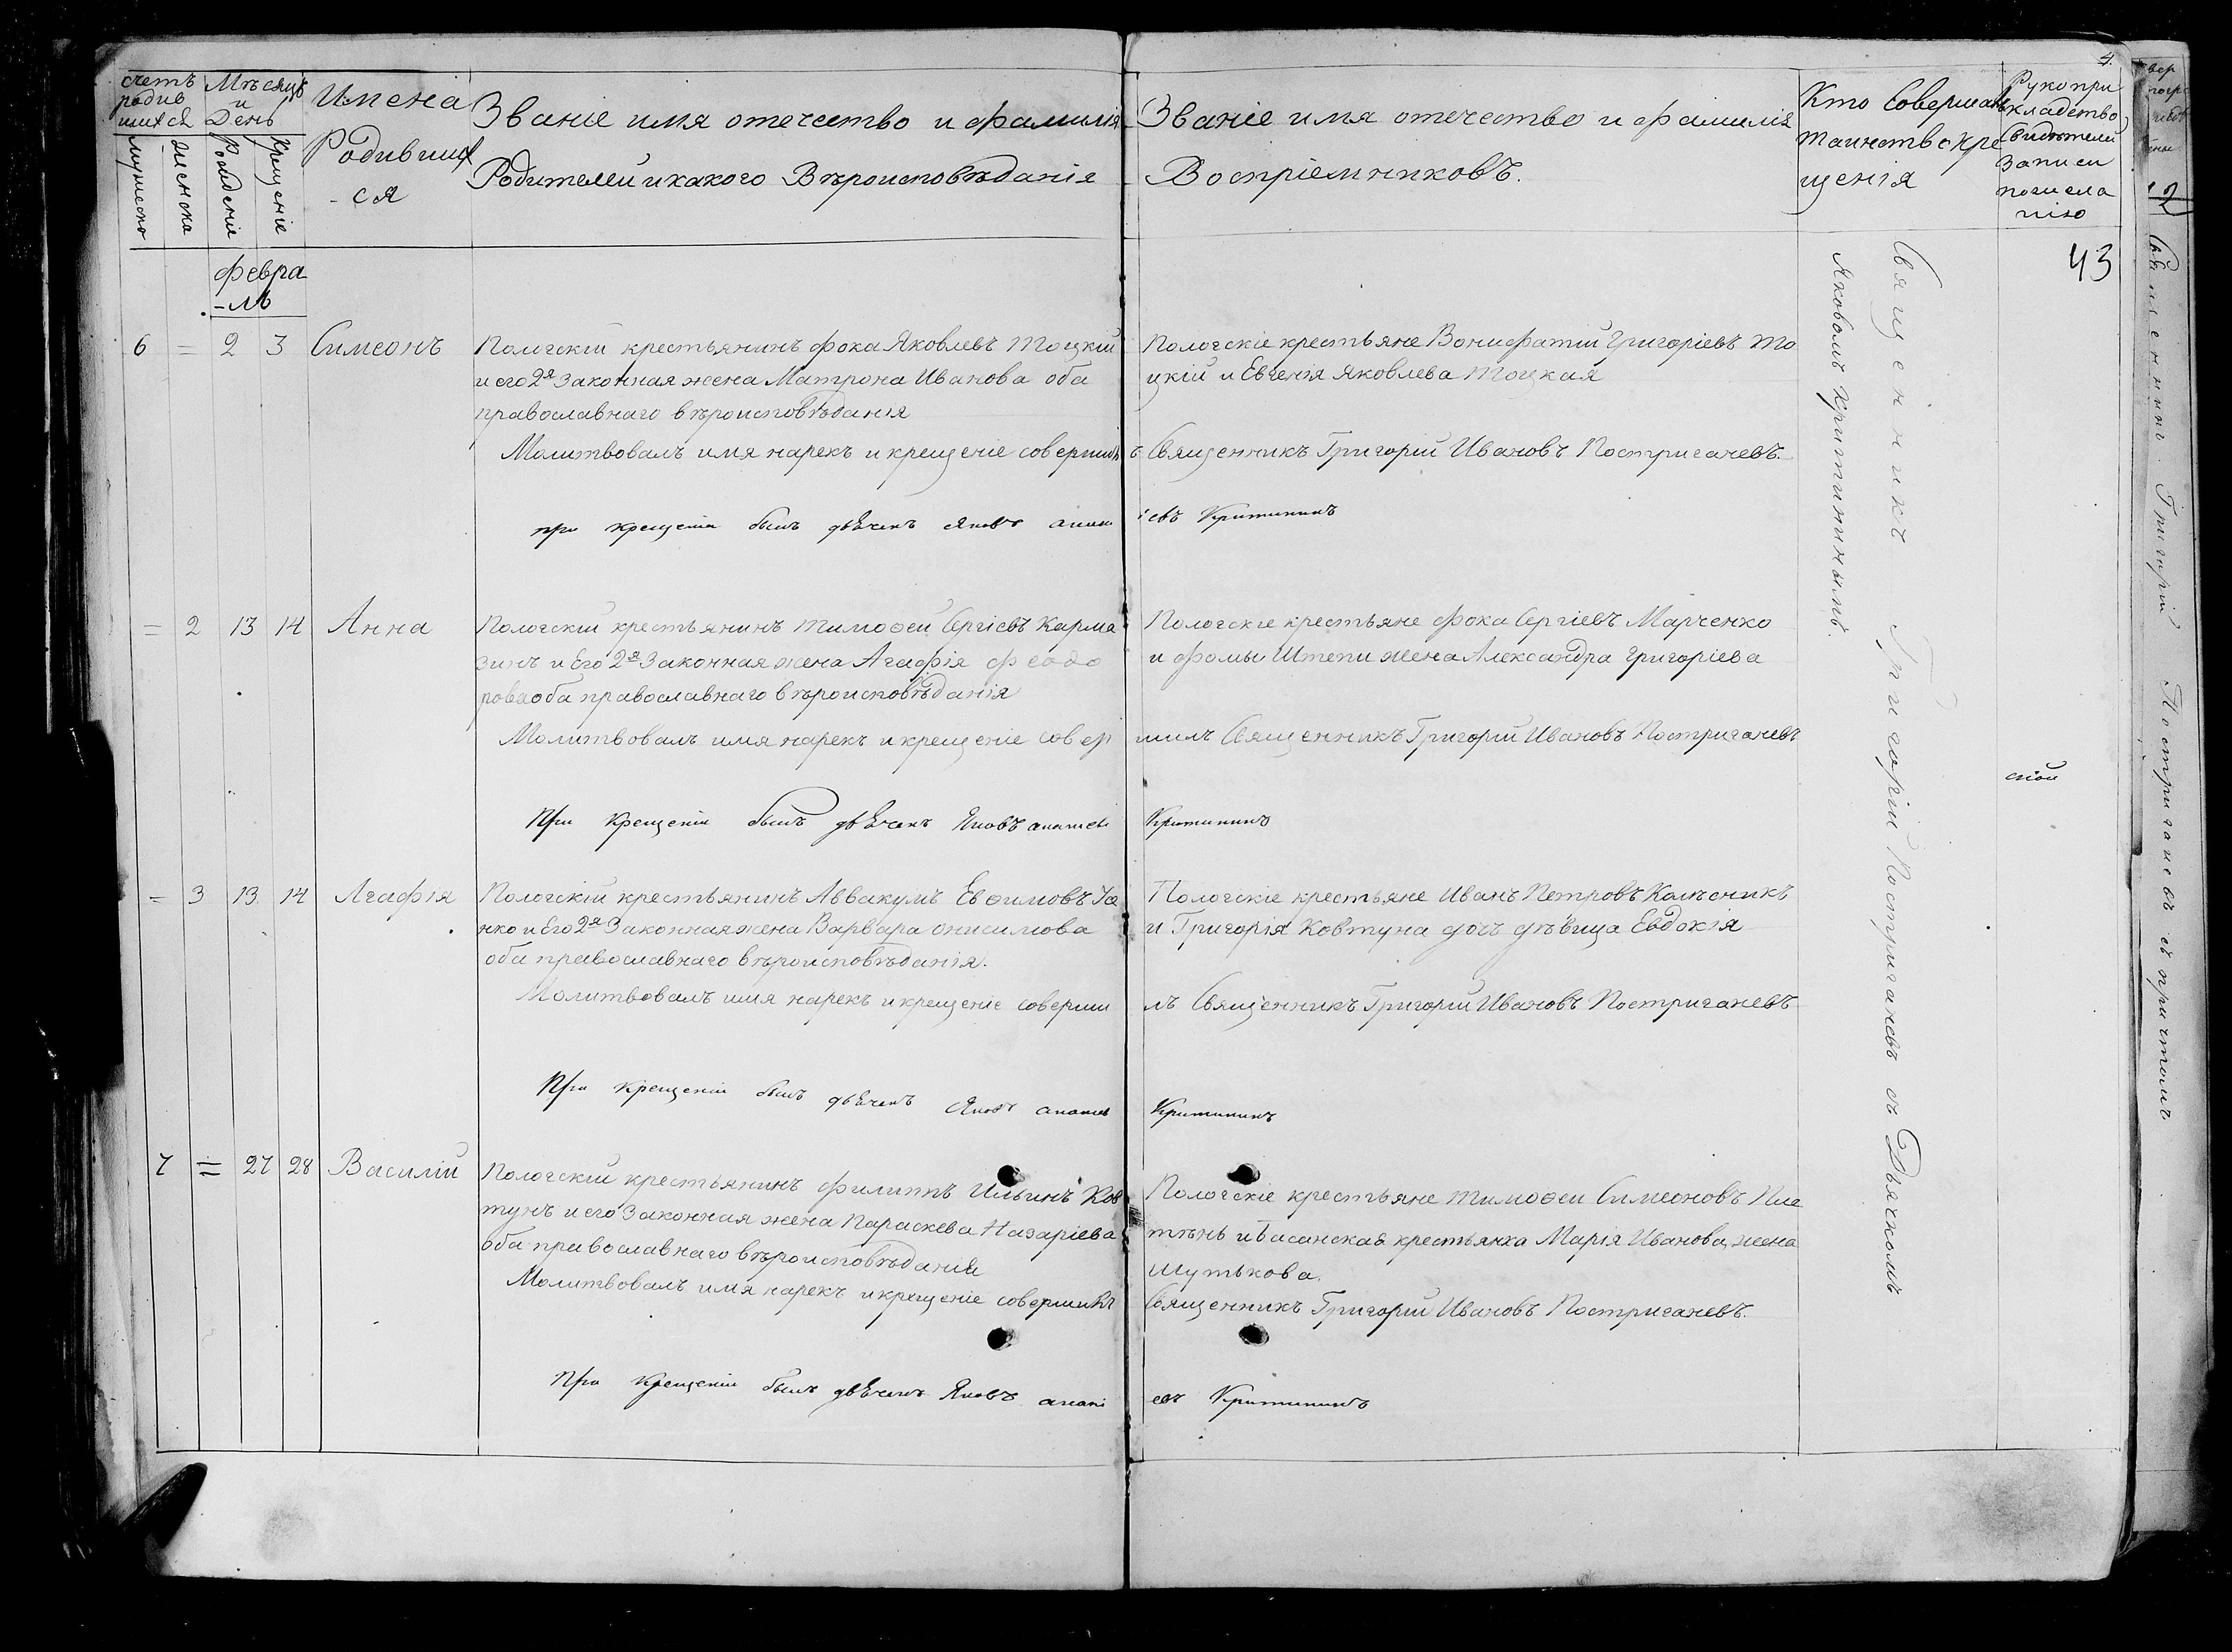 4.
счетъ родив шихся
Мѣсяцъ и День
Имена Родивших -ся
Званіе имя отечество и фамилія
Родителей и какого Вѣроисповѣданія
Званіе имя отечество и фамилія
Воспріемниковъ.
Кто Совершалъ таинство кре щенія
Рукопри кладство Свидѣтелей записи
мужеска
женска
Рожденіе
Крещеніе
февра -ль
43
6 = 2 3 Симеонъ
Пологскій крестьянинъ Фока Яковлевъ Тоцкій
и его 2я законная жена Матрона Иванова оба
православнаго вѣроисповѣданія
Пологскіе крестьяне Вонифатій Григоріевъ То
цкій и Евгенія Яковлева Тоцкая
Молитвовалъ имя нарекъ и крещеніе совершилъ Священникъ Григорій Ивановъ Постригачевъ.
при крещеніи былъ дьЕчекъ Яковъ анані евъ Критининъ
= 2 13 14 Анна
Пологскій крестьянинъ Тимоѳей Сергіевъ Карма
зинъ и Его 2я Законная жена Агафія Феодо
рова оба православнаго вѣроисповѣданія
Пологскіе крестьяне Фока Сергіевъ Марченко
и Фомы Штепи жена Александра Григоріева
Молитвовалъ имя нарекъ и крещеніе совер шилъ Священникъ Григорій Ивановъ Постригачевъ
При Крещеніи былъ дьЕчекъ Яковъ Критининъ
= 3 13 14 Агафія
Пологскій крестьянинъ Аввакумъ Евѳимовъ
нко и Его 2я Законная жена Варвара Онисимова
оба православнаго вѣроисповѣданія.
Пологскіе крестьяне Иванъ Петровъ Колѣсникъ
и Григорія Ковтуна дочь дѣвица Евдокія
Молитвовалъ имя нарекъ и крещеніе соверши лъ Священникъ Григорій Ивановъ Постригачевъ
При крещеніи былъ дьЕчекъ Яковъ Критининъ
7 = 27 28 Василій
Пологскій крестьянинъ Филиппъ Ильинъ Ков
тунъ и его Законная жена Параскева Назаріева
оба православнаго вѣроисповѣданія
Пологскіе крестьяне Тимоѳей Симеоновъ Пле
тѣнь и Басанская крестьянка Марія Иванова, жена
Шутькова.
Молитвовалъ имя нарекъ и крещеніе совершилъ Священникъ Григорій Ивановъ Постригачевъ.
При Крещеніи былъ дьЕчекъ Яковъ анані евъ Критининъ
Священникъ Григорій Постригачевъ съ Дьячкомъ
Яковомъ Критининымъ.
Священникъ Григорій Постригачевъ съ причтомъ